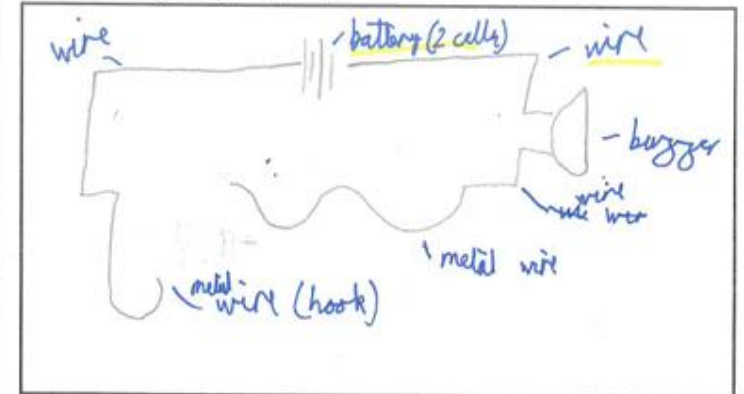 wire
battery (2 cells)
wire
buzzer
wire
metal wire
metal
wire (hook)